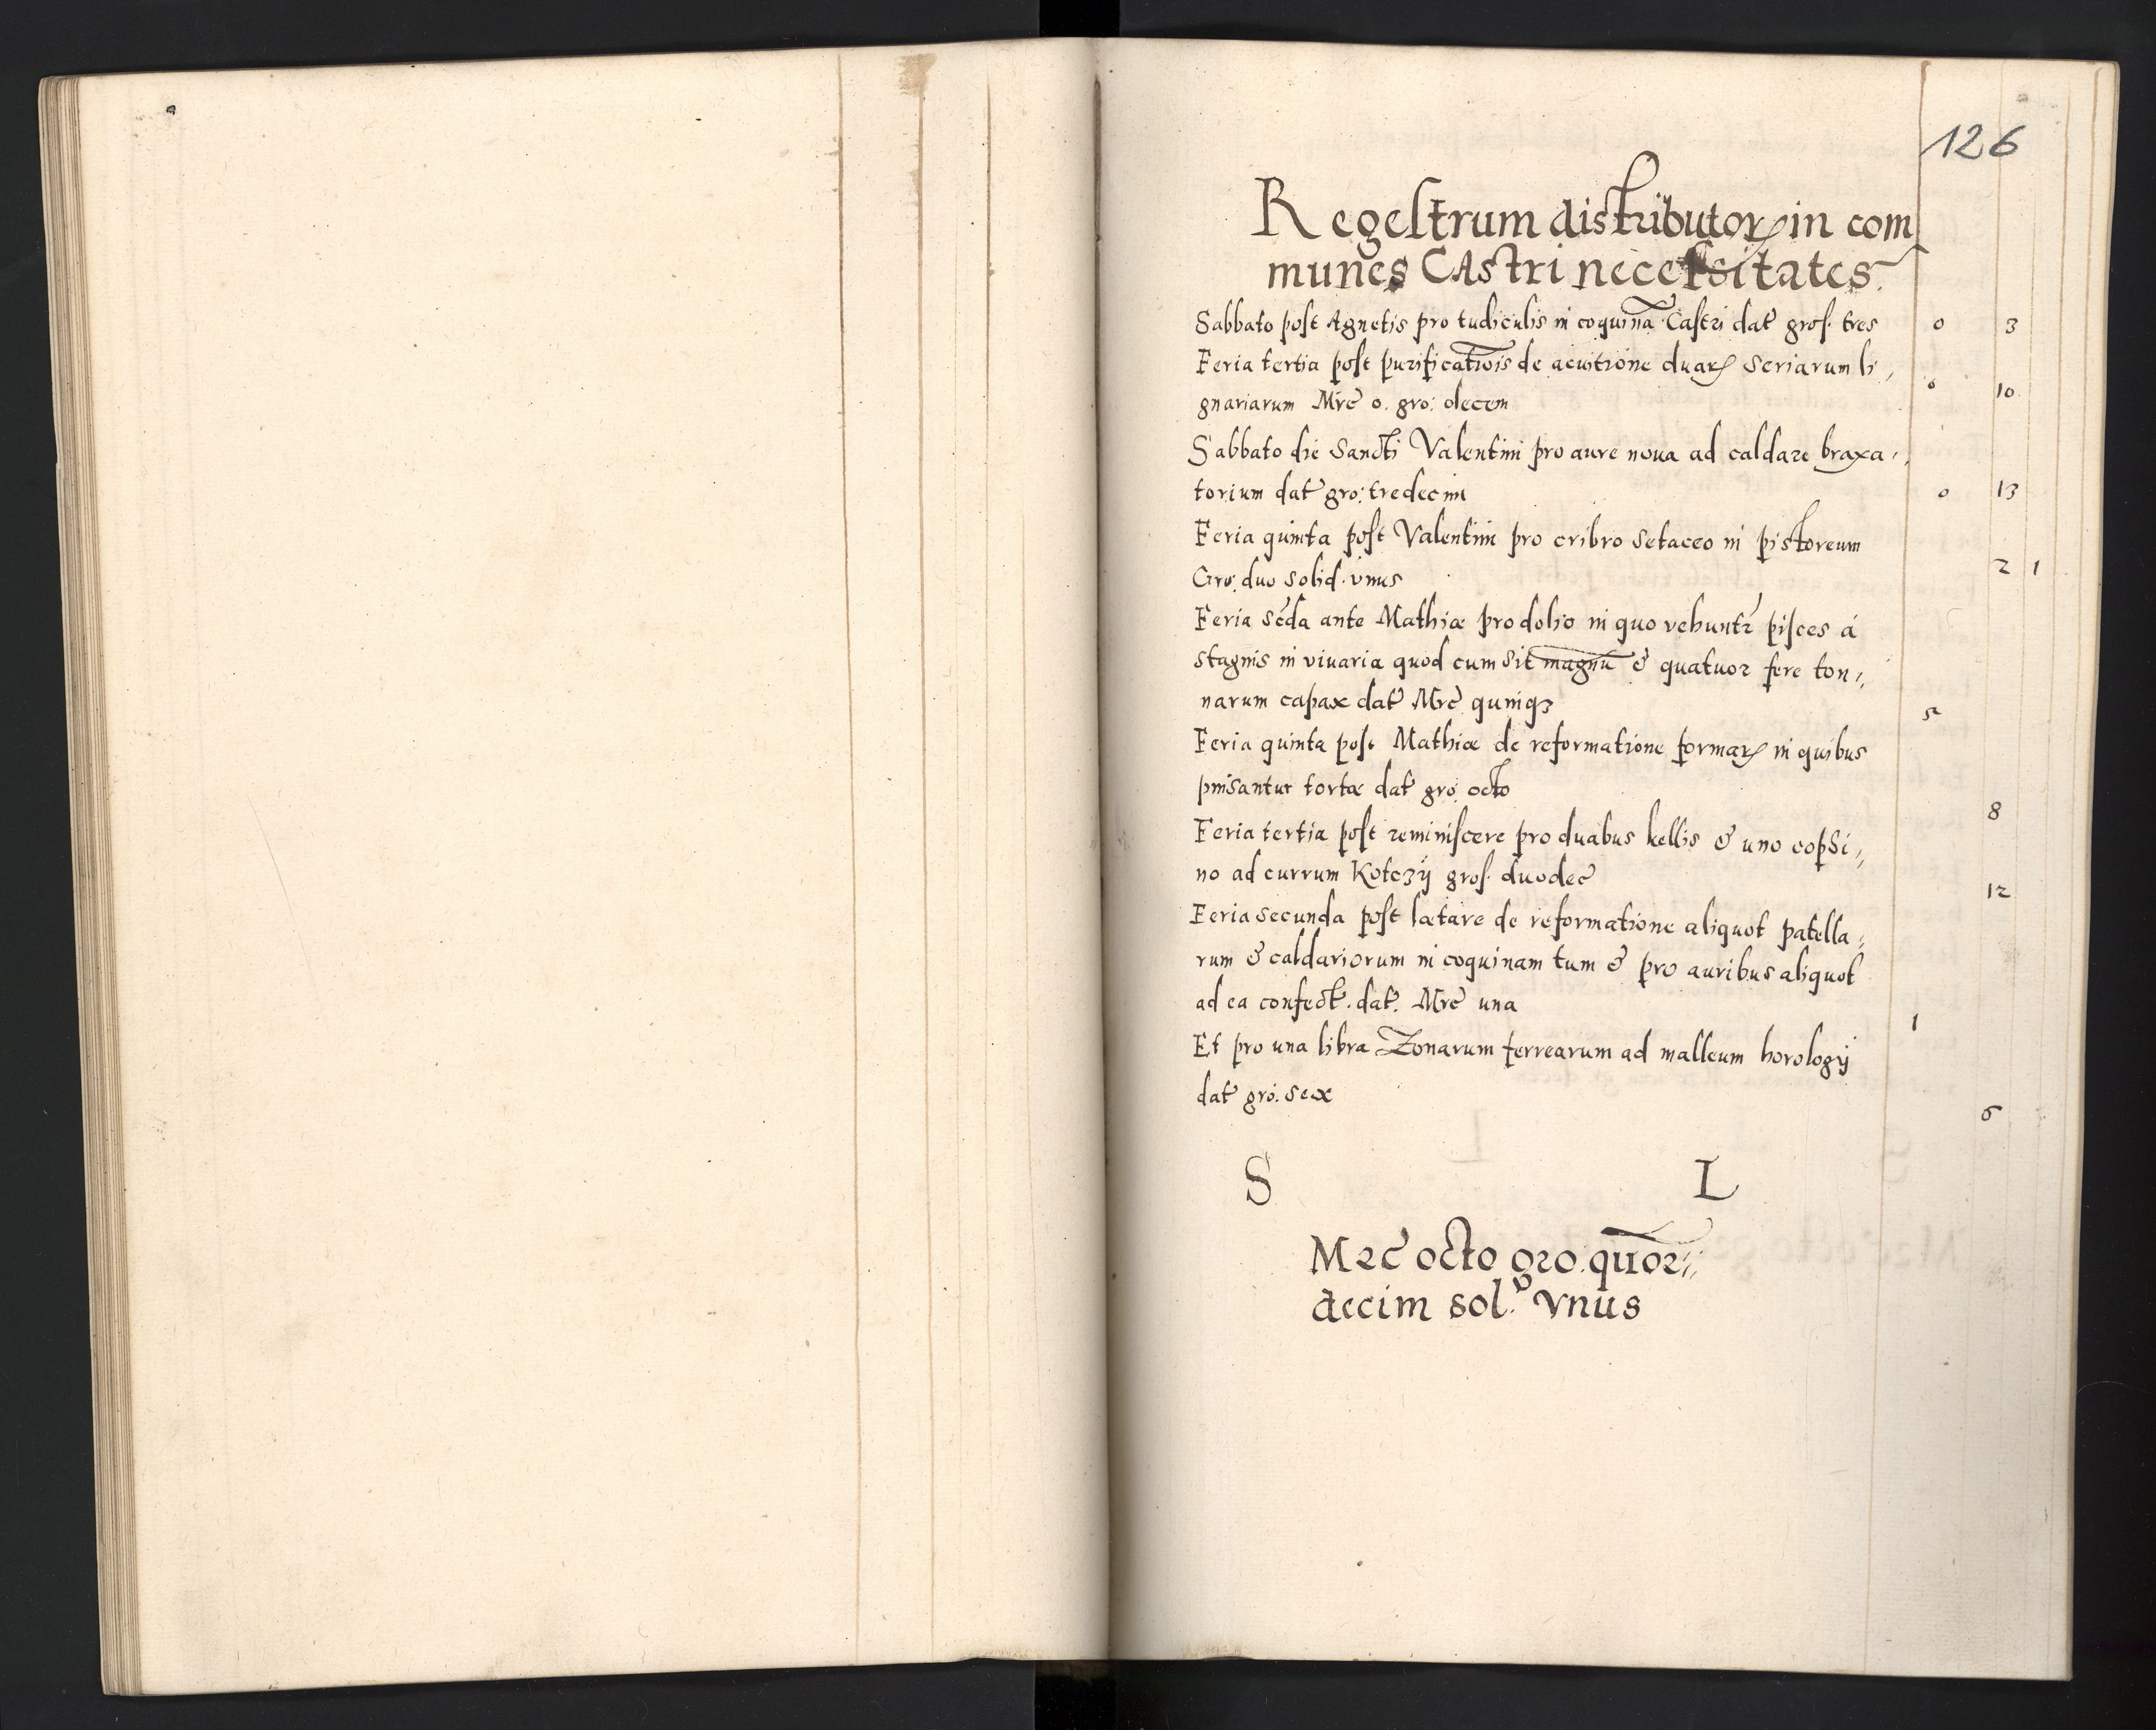 126
Regestrum distributorꝝ in com
munes Castri necessitates.
Sabbato post Agnetis pro tudiculis in coquinā Castri dat gros. tres 0 3
Feria tertia post purificatiōis de acuitione duarꝝ seriarum li,
gnariarum Mrc o. gro: decem 0 10
Sabbato die Sancti Valentini pro aure noua ad caldare braxa,,
torium dat gro: tredecim 0 13
Feria quinta post Valentini pro cribro setaceo in pistoreum
Gro: duo solid. vnus 2 1
Feria secda ante Mathiæ pro dolio in quo vehuntr pisces á
stagnis in viuaria quod cum sit magnū & quatuor fere ton,,
narum capax dat Mrc quinqȝ 5
Feria quinta post Mathiæ de reformatione formarꝝ in quibus
pinsantur tortæ dat gro: octo 8
Feria tertia post reminiscere pro duabus kellis & uno copsi,,
no ad currum Kotczÿ gros. duodec 12
Feria secunda post lætare de reformatione aliquot patella,,
rum & caldariorum in coquinam tum & pro auribus aliquot
ad ea confect. dat. Mrc una 1
Et pro una libra Zonarum ferrearum ad malleum horologÿ
dat gro. sex 6
S L
Mrc octo gro. quor,,
decim sol. vnus